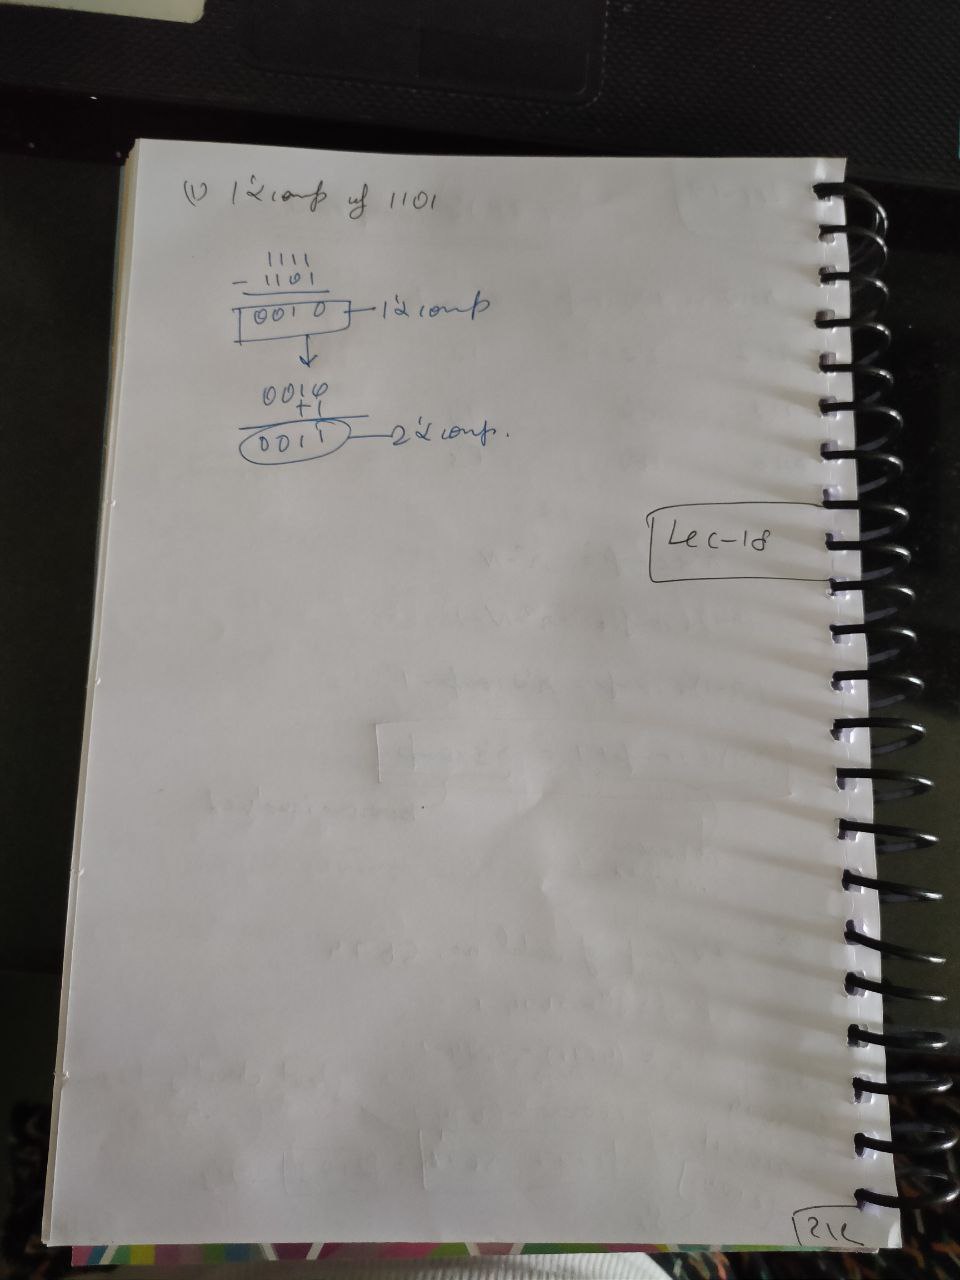 (1) 1's comp of 1101
1111
- 1101
0010 — 1's comp
0010
+1
0011 — 2's comp.
Lec-18